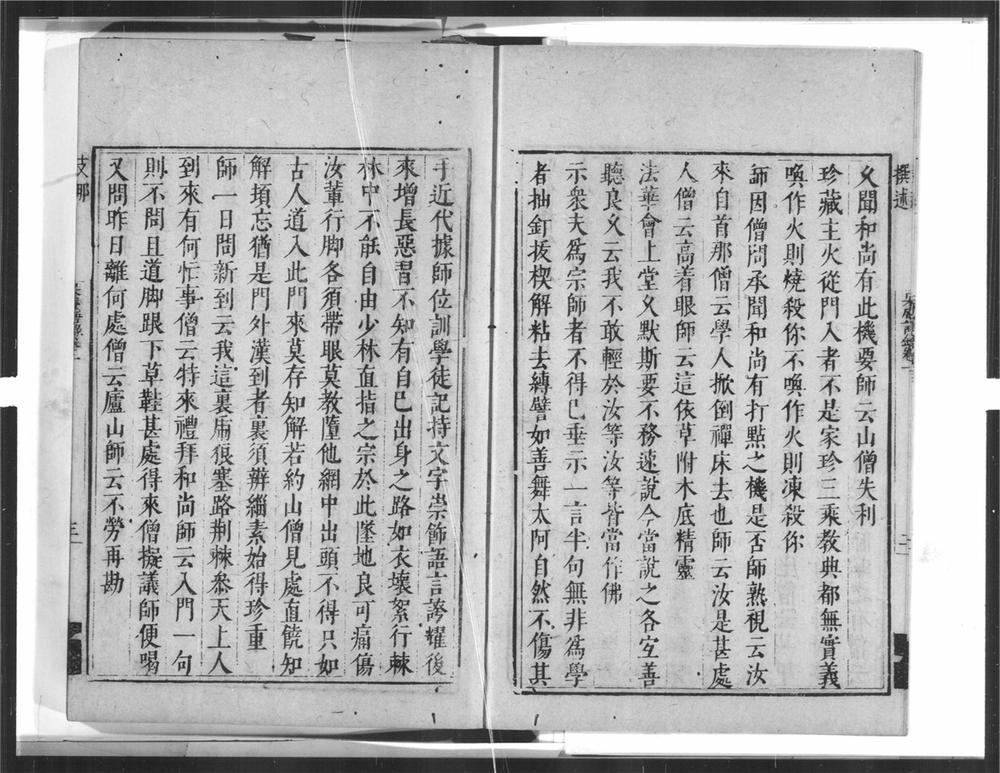 撰述
又聞和尚有此機要師云山僧失利
珍藏主火從門入者不是家珍三乘教典都無實義
喚作火則燒殺你不喚作火則凍殺你
師因僧問承聞和尚有打點之機是否師熟視云汝
來自首那僧云學人掀倒禪床去也師云汝是甚處
人僧云高着眼師云這依草附木底精靈
法華會上堂又默斯要不務速說今當說之各宜善
聽良乂云我不敢輕於汝等汝等皆當作佛
示衆夫爲宗師者不得已垂示一言半句無非爲學
者抽釘拔楔解粘去縛譬如善舞太阿自然不傷其
手近代據師位訓學徒記持文字崇飾語言誇耀後
來增長惡習不知有自巳出身之路如衣壞絮行棘
林中不能自由少林直指之宗於此墜地良可痛傷
汝輩行脚各須帶眼莫教墮他網中出頭不得只如
古人道入此門來莫存知解若約山僧見處直饒知
解頓忘猶是門外漢到者裏須辨緇素始得珍重
師一日問新到云我這裏虎狼塞路荆棘叅天上人
到來有何忙事僧云特來禮拜和尚師云入門一句
則不問且道脚跟下草鞋甚處得來僧擬議師便喝
又問昨日離何處僧云廬山師云不勞再勘
支那
三